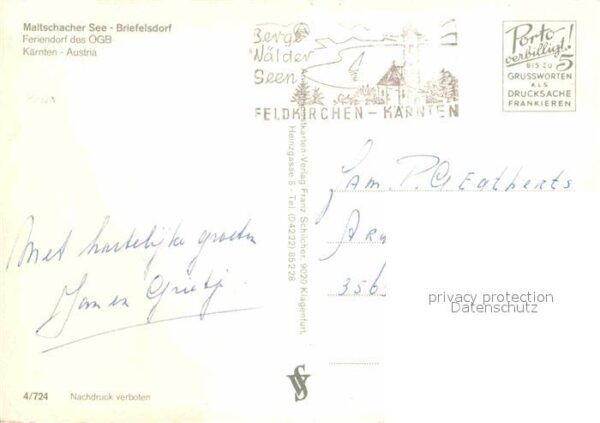 Maltschacher See - Briefelsdorf
Feriendorf des ÖGB
Kärnten - Austria
Berge
Wälder
Seen
FELDKIRCHEN - KÄRNTEN
Porto
verbilligt!
BIS ZU 5
GRUSSWORTEN
ALS
DRUCKSACHE
FRANKIEREN
Ansichtkarten-Verlag Franz Schilcher, 9020 Klagenfurt,
Heinzgasse 5 - Tel. (04222) 85228
Fam. P. Geatherts
Met hartelijke groeten
Jan en Grietj
privacy protection
Datenschutz
4/724
Nachdruck verboten